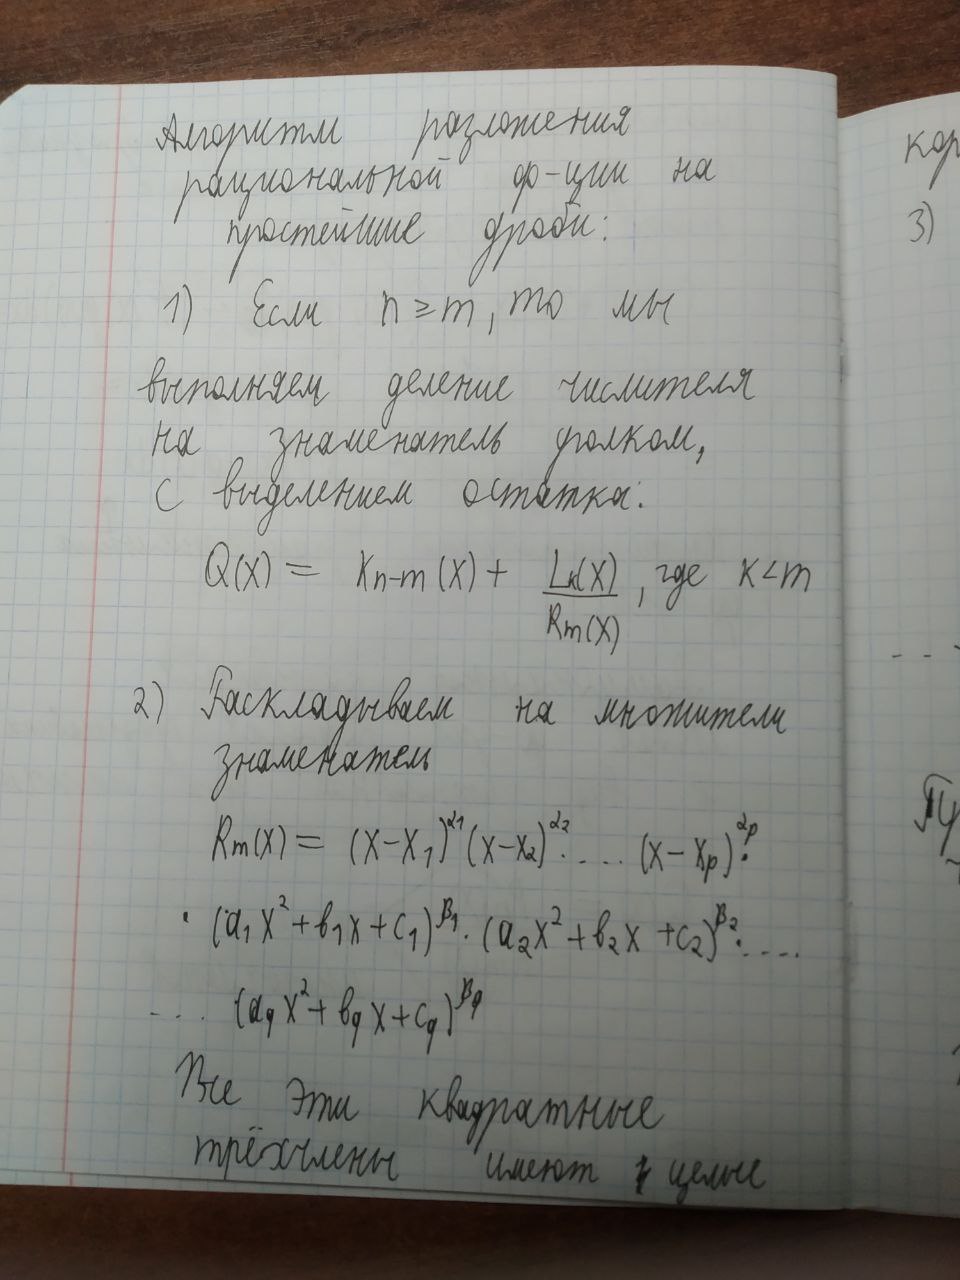 Алгоритм разложения
рациональной ф-ции на
простейшие дроби:
1) Если n ≥ m, то мы
выполняем деление числителя
на знаменатель уголком,
с выделением остатка:
Q(x) = Kn-m(x) + Lk(x)/Rm(x), где k < m
2) Раскладываем на множители
знаменатель
Rm(x) = (x-x₁)^α₁ (x-x₂)^α₂ · .... (x-xp)^αp ·
· (a₁x²+b₁x+c₁)^β₁ · (a₂x²+b₂x+c₂)^β₂ · ....
.... (aqx²+bqx+cq)^βq
Все эти квадратные
трёхчлены имеют целые
кор
3)